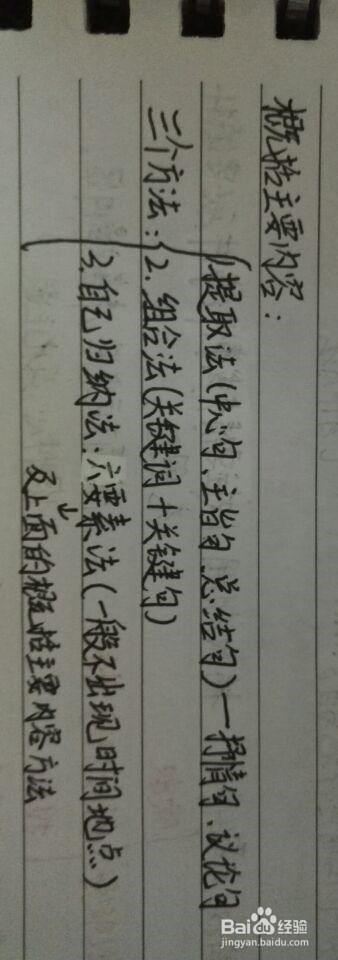 概括主要内容:
1.提取法(中心句、主旨句、总结句)—抒情句、议论句
三个方法:2.组合法(关键词+关键句)
3.自己归纳法:六要素法(一般不出现时间地点)
及上面的概括主要内容方法
Baidu经验
jingyan.baidu.com